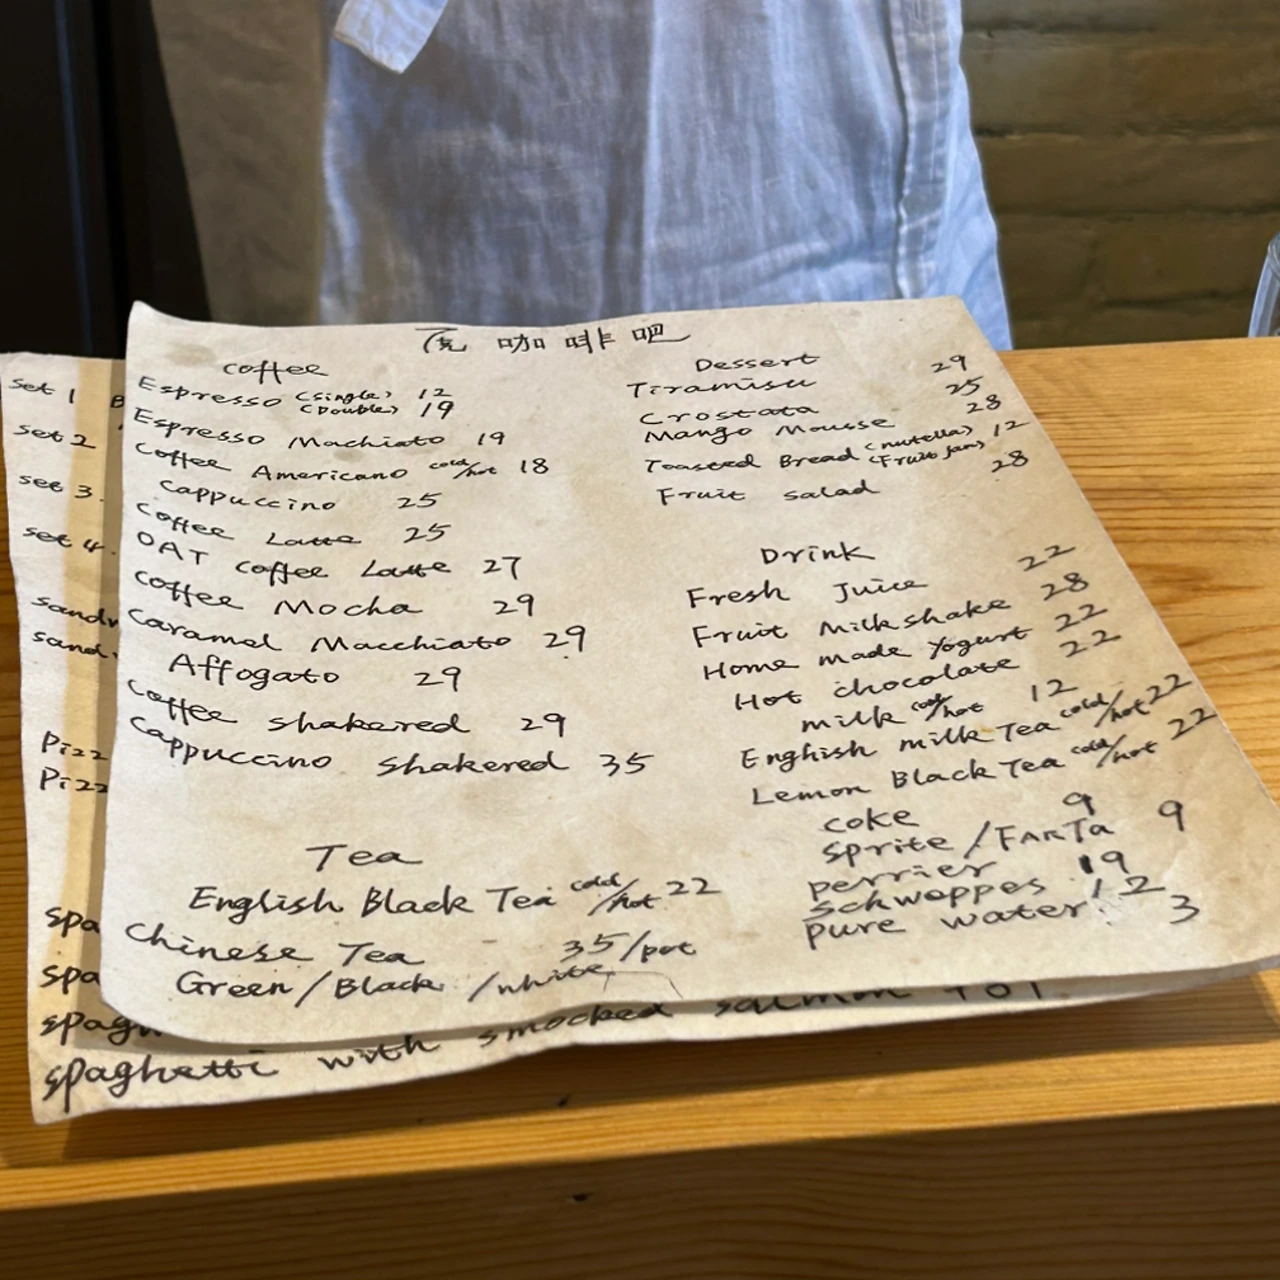 咖啡吧
Coffee
Espresso (single) 12
(Double) 19
Espresso Machiato 19
Coffee Americano cold/hot 18
Cappuccino 25
Coffee Latte 25
OAT Coffee Latte 27
Coffee Mocha 29
Caramel Macchiato 29
Affogato 29
Coffee shakered 29
Cappuccino shakered 35
Tea
English Black Tea cold/hot 22
Chinese Tea 35/pot
Green/Black/white
Dessert
Tiramisu 29
Crostata 25
Mango Mousse 28
Toasted Bread (nutella) (Fruit Jam) 12
Fruit salad 28
Drink
Fresh Juice 22
Fruit Milkshake 28
Home made Yogurt 22
Hot chocolate 22
milk cold/hot 12
Enghish milk Tea cold/hot 22
Lemon Black Tea cold/hot 22
coke 9
sprite/FANTa 9
perrier 19
schweppes 12
pure water 3
set 1 B
set 2
set 3.
set 4.
sandw
sand
Pizz
Pizz
spa
spa
spagh
with smocked salmon
spaghetti